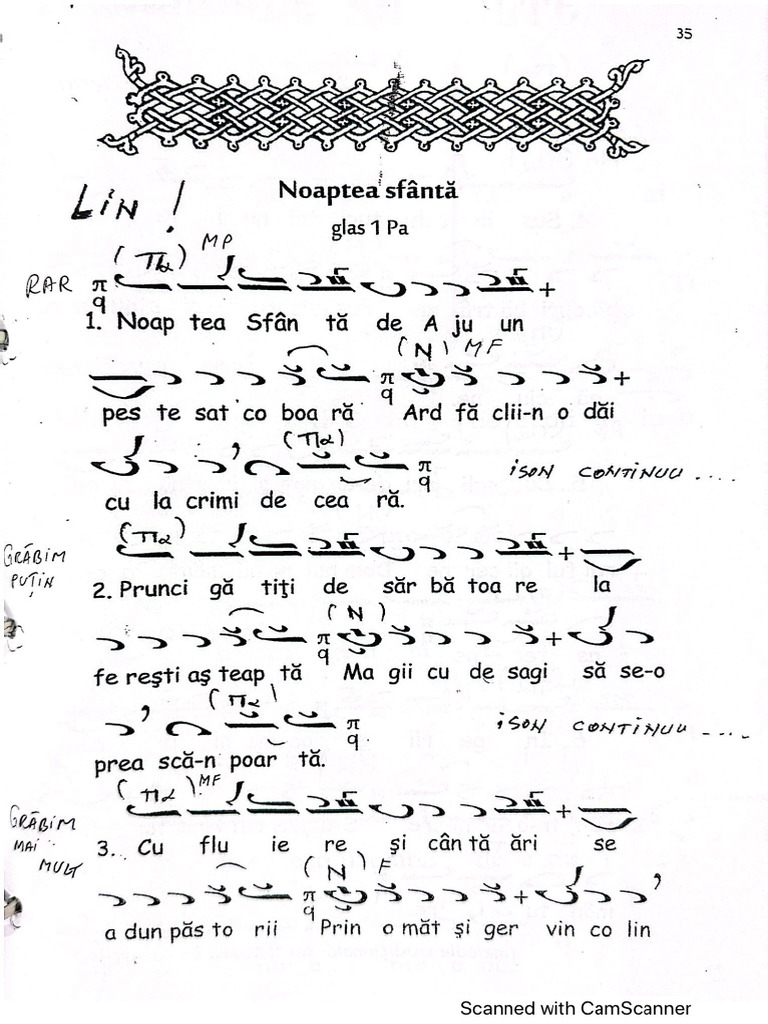 35
LIN !
Noaptea sfântă
glas 1 Pa
(Πα) MP
RAR π q
1. Noap tea Sfân tă de A ju un
(N) MF
π q
pes te sat co boa ră Ard fă clii-n o dăi
(Πα)
π q ISON CONTINUU ....
cu la crimi de cea ră.
GRĂBIM PUȚIN (Πα)
2. Prunci gă tiţi de săr bă toa re la
(N)
π q
fe reşti aş teap tă Ma gii cu de sagi să se-o
(Πα)
π q ISON CONTINUU ....
prea scă-n poar tă.
(Πα) MF
GRĂBIM MAI MULT
3. Cu flu ie re şi cân tă ări se
(N) F
π q
a dun păs to rii Prin o măt şi ger vin co lin
Scanned with CamScanner